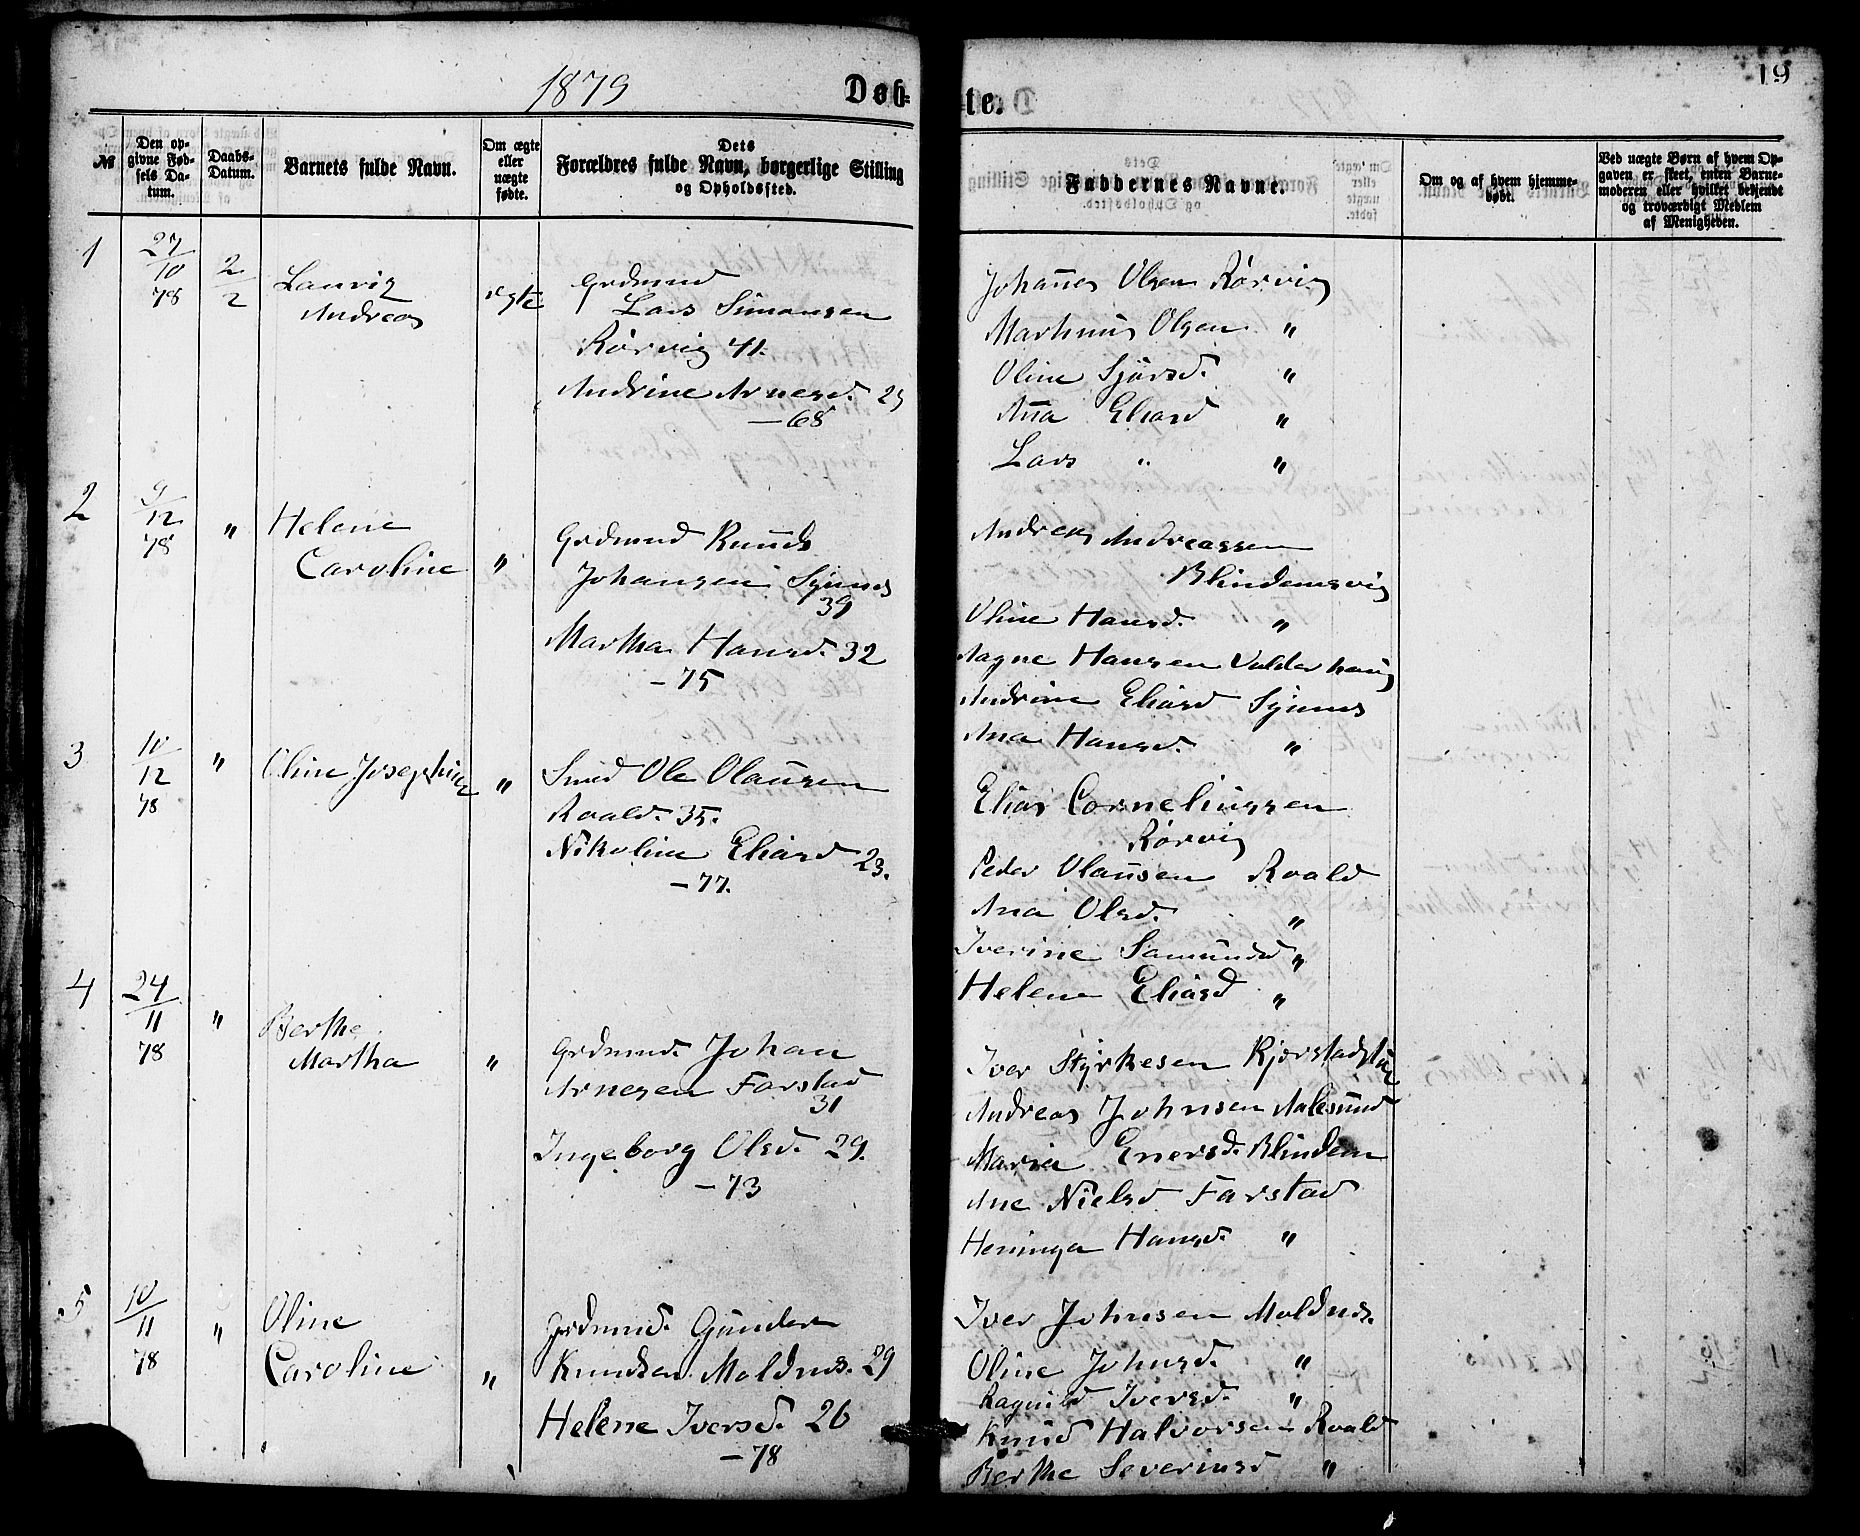 1879
Døb-
te.
19
№
Den op-
givne Fød-
sels Da-
tum.
Daabs-
Datum.
Barnets fulde Navn.
Om ægte
eller
uægte
fødte.
Dets
Forældres fulde Navn, borgerlige Stilling
og Opholdssted.
Faddernes Navne.
Om og af hvem hjemme-
døbt.
Ved uægte Børn af hvem Op-
gaven er skeet, enten Barne-
moderen eller hvilket bekjendt
og troværdigt Medlem
af Menigheden.
1
27/10 78
2/2
Laurig
Andreas
ægte
Grdmnd
Lars Simonsen
Rørvig 41.
Andrine Arnesd. 25
— 68
Johannes Olsen Rørvig
Marthinus Olsen "
Oline Sjursd. "
Anna Eliasd "
Lars " "
2
9/12 78
"
Helene
Caroline
"
Grdmnd Knud
Johansen Synnes
39
Martha Hansd. 32
— 75
Andreas Andreassen
Blindemsvig
Oline Hansd. "
Aagne Hansen Valderhaug
Andrine Eliasd Synnes
Ana Hansd. "
3
10/12 78
"
Oline Josephine
"
Smed Ole Olausen
Roald. 35.
Nikoline Eliasd 23.
— 77.
Elias Corneliussen
Rørvig
Peder Olausen Roald
Ana Olsd. "
Iverine Samundsd "
Helene Eliasd "
4
24/11 78
"
Berthe
Martha
"
Grdmnd. Johan
Arnesen Farstad
31
Ingeborg Olsd. 29.
— 73
Iver Styrkesen Kjerstad
Andreas Johnsen Aalesund
Maria Enersd. Blindem
Ane Nielsd Farstad
Heninga Hansd. "
5
10/11 78
"
Oline
Caroline
"
Grdmnd. Gunder
Knudsen Moldnes. 29
Helene Iversd. 26
— 78
Iver Johnsen Moldnes.
Oline Johnsd. "
Ragnild Iversd. "
Knud Halvorsen Roald
Berthe Severinsd "